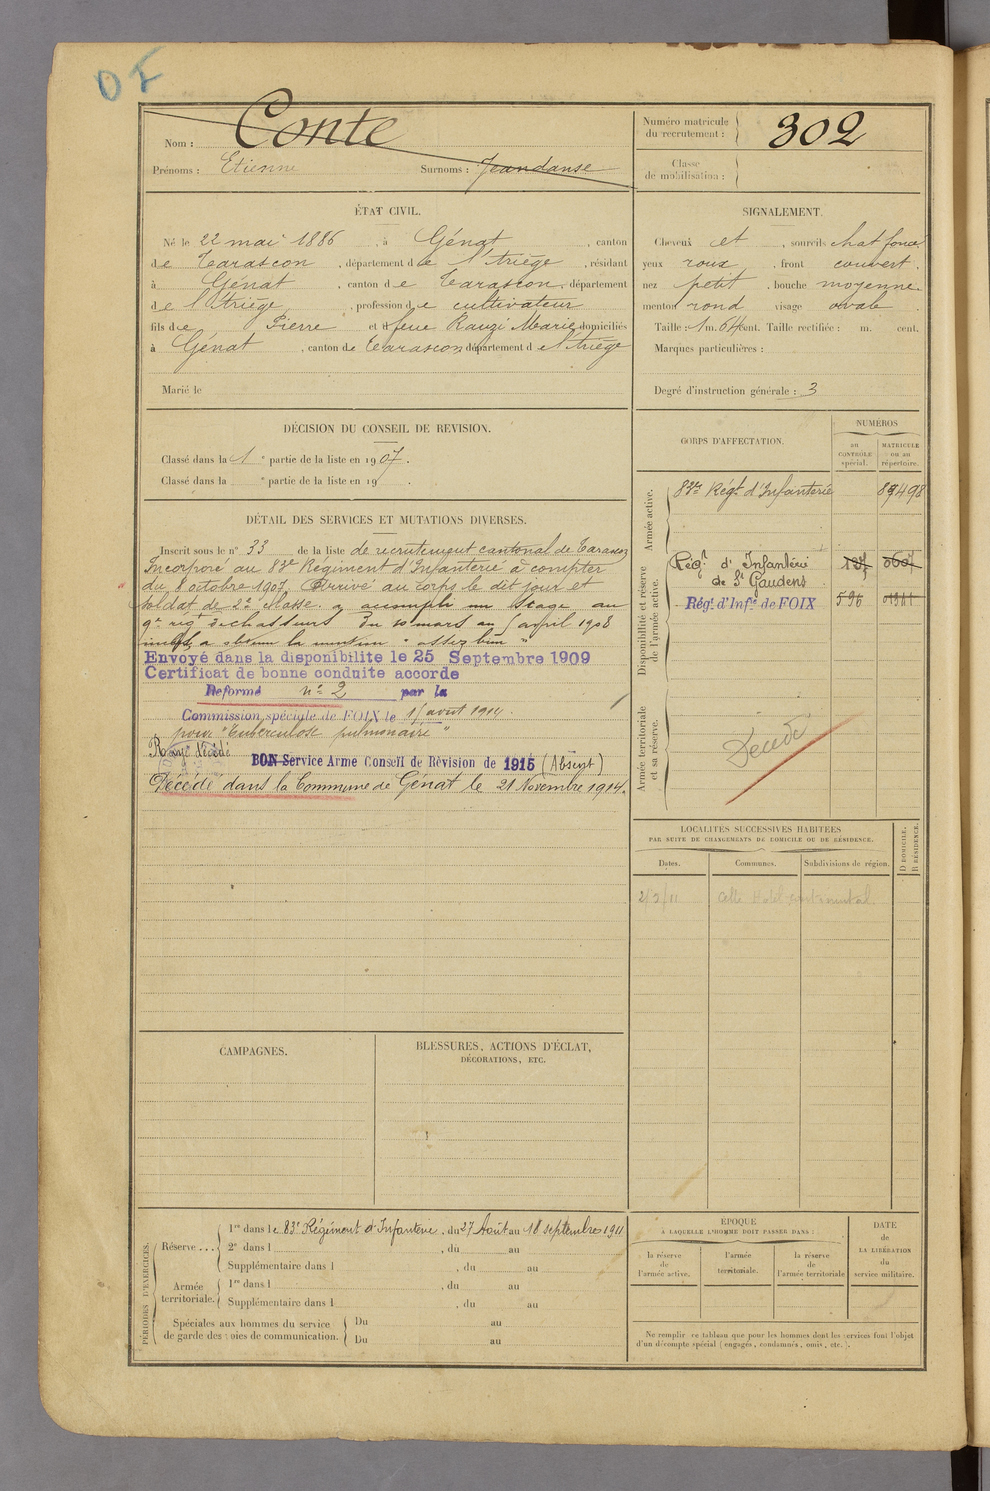 OF
Nom : Conte
Prénoms : Etienne Surnoms : Jeandanse
Numéro matricule du recrutement : 302
Classe de mobilisation :
ÉTAT CIVIL.
Né le 22 mai 1886, à Génat, canton
de Tarascon, département de l'Ariège, résidant
à Génat, canton de Tarascon, département
de l'Ariège, profession de cultivateur
fils de Pierre et de feue Rauzi Marie domiciliés
à Génat, canton de Tarascon département de l'Ariège
Marié le
SIGNALEMENT.
Cheveux et, sourcils chat foncé
yeux roux, front couvert.
nez petit, bouche moyenne.
menton rond visage ovale
Taille : 1 m. 64 cent. Taille rectifiée : m. cent.
Marques particulières :
Degré d'instruction générale : 3
DÉCISION DU CONSEIL DE REVISION.
Classé dans la 1e partie de la liste en 1907.
Classé dans la e partie de la liste en 19 .
DÉTAIL DES SERVICES ET MUTATIONS DIVERSES.
Inscrit sous le n° 33 de la liste de recrutement cantonal de Tarascon
Incorporé au 83e Régiment d'Infanterie à compter
du 8 octobre 1907. Arrivé au corps le dit jour et
soldat de 2e classe. a accompli un stage au
9e rég. de chasseurs du 10 mars au 5 avril 1908
a obtenu la mention "assez bien"
Envoyé dans la disponibilite le 25 Septembre 1909
Certificat de bonne conduite accorde
Réformé n° 2 par la
Commission spéciale de FOIX le 15 avril 1914.
pour "Tuberculose pulmonaire"
Rayé Décédé
BON Service Armé Conseil de Révision de 1915 (Absent)
Décédé dans la Commune de Génat le 21 Novembre 1914.
CORPS D'AFFECTATION.
NUMÉROS
au CONTRÔLE spécial.
MATRICULE ou au répertoire.
Armée active.
83me Régt d'Infanterie
Disponibilité et réserve de l'armée active.
Régt d'Infanterie de St Gaudens
Régt d'Infie de FOIX 596
Armée territoriale et sa réserve.
Décédé
LOCALITÉS SUCCESSIVES HABITÉES
PAR SUITE DE CHANGEMENTS DE DOMICILE OU DE RÉSIDENCE.
Dates. Communes. Subdivisions de région. D DOMICILE. R RÉSIDENCE.
CAMPAGNES.
BLESSURES, ACTIONS D'ÉCLAT,
DÉCORATIONS, ETC.
PÉRIODES D'EXERCICES.
Réserve...
1re dans le 83e Régiment d'Infanterie, du 27 Août au 18 septembre 1911
2e dans l , du au
Supplémentaire dans l , du au
Armée territoriale.
1re dans l , du au
Supplémentaire dans l , du au
Spéciales aux hommes du service de garde des voies de communication.
Du au
Du au
EPOQUE
À LAQUELLE L'HOMME DOIT PASSER DANS :
la réserve de l'armée active.
l'armée territoriale.
la réserve de l'armée territoriale
DATE de LA LIBÉRATION du service militaire.
Ne remplir ce tableau que pour les hommes dont les services font l'objet
d'un décompte spécial (engagés, condamnés, omis, etc.).